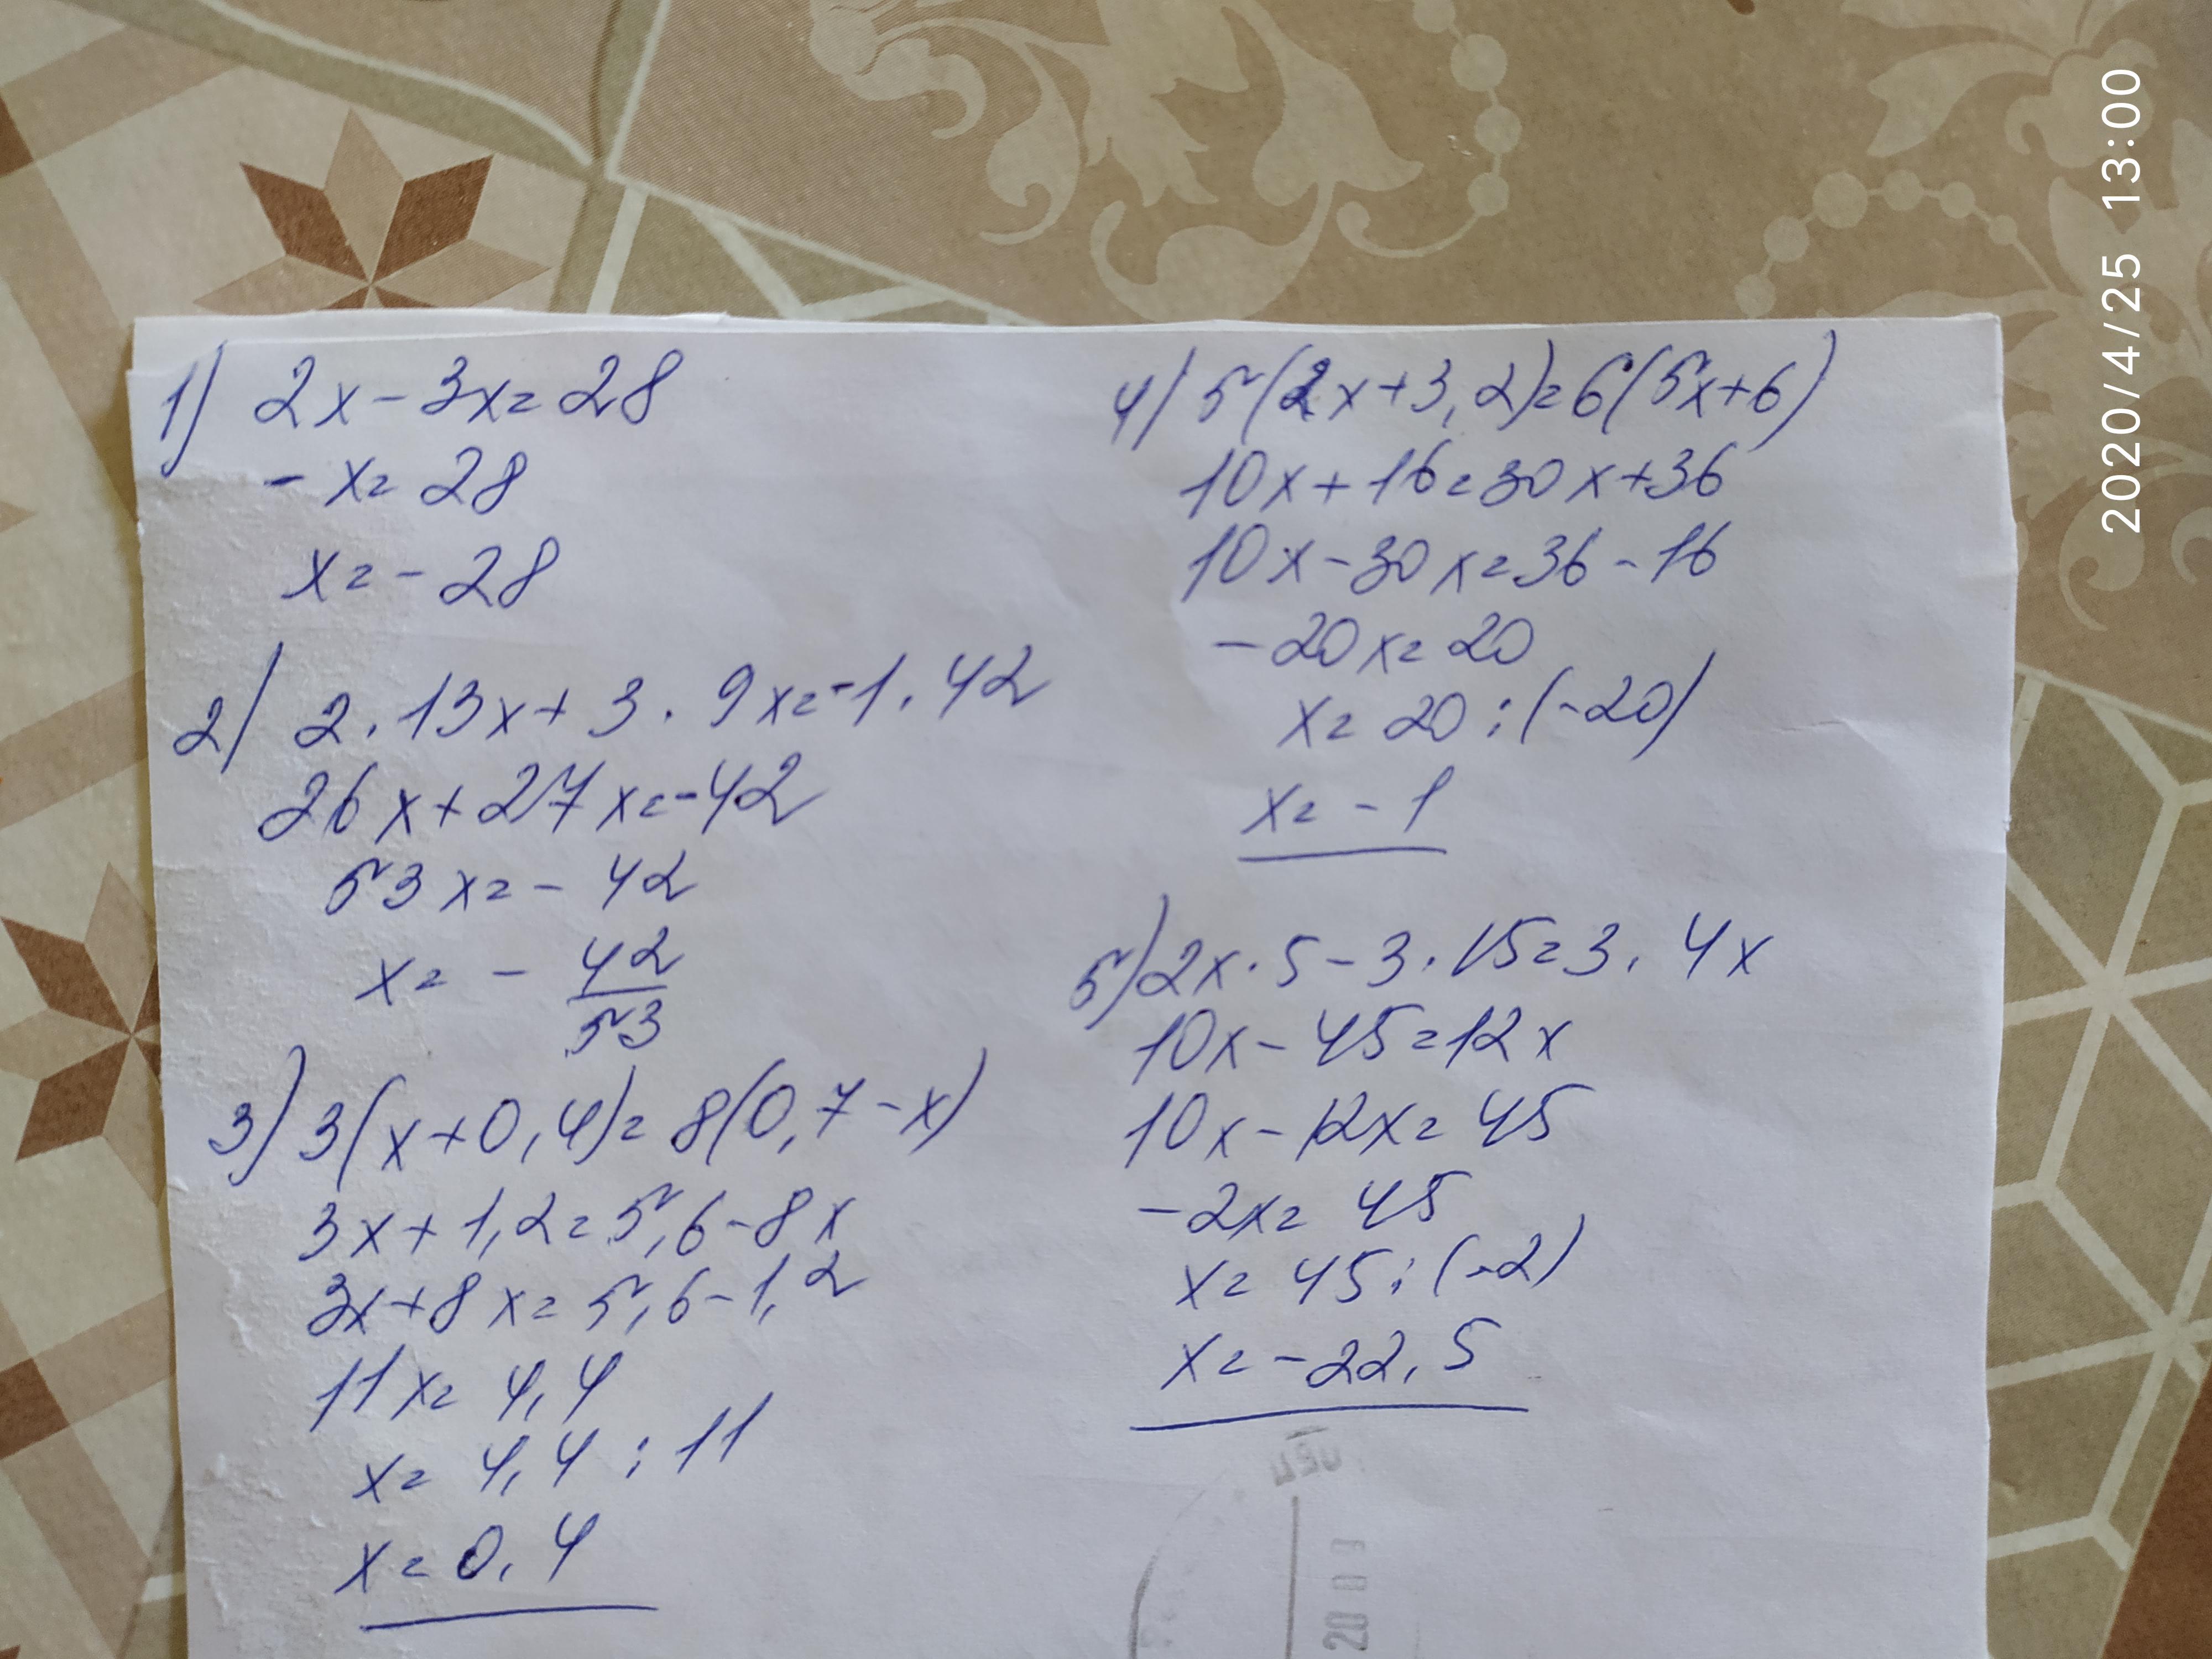 1) 2x-3x=28
-x=28
x=-28
2) 2.13x+3.9x=-1.42
26x+27x=-42
53x=-42
x=-42/53
3) 3(x+0,4)=8(0,7-x)
3x+1,2=5,6-8x
3x+8x=5,6-1,2
11x=4,4
x=4,4:11
x=0,4
4) 5(2x+3,2)=6(5x+6)
10x+16=30x+36
10x-30x=36-16
-20x=20
x=20:(-20)
x=-1
5) 2x·5-3.15=3.4x
10x-45=12x
10x-12x=45
-2x=45
x=45:(-2)
x=-22,5
2020/4/25 13:00